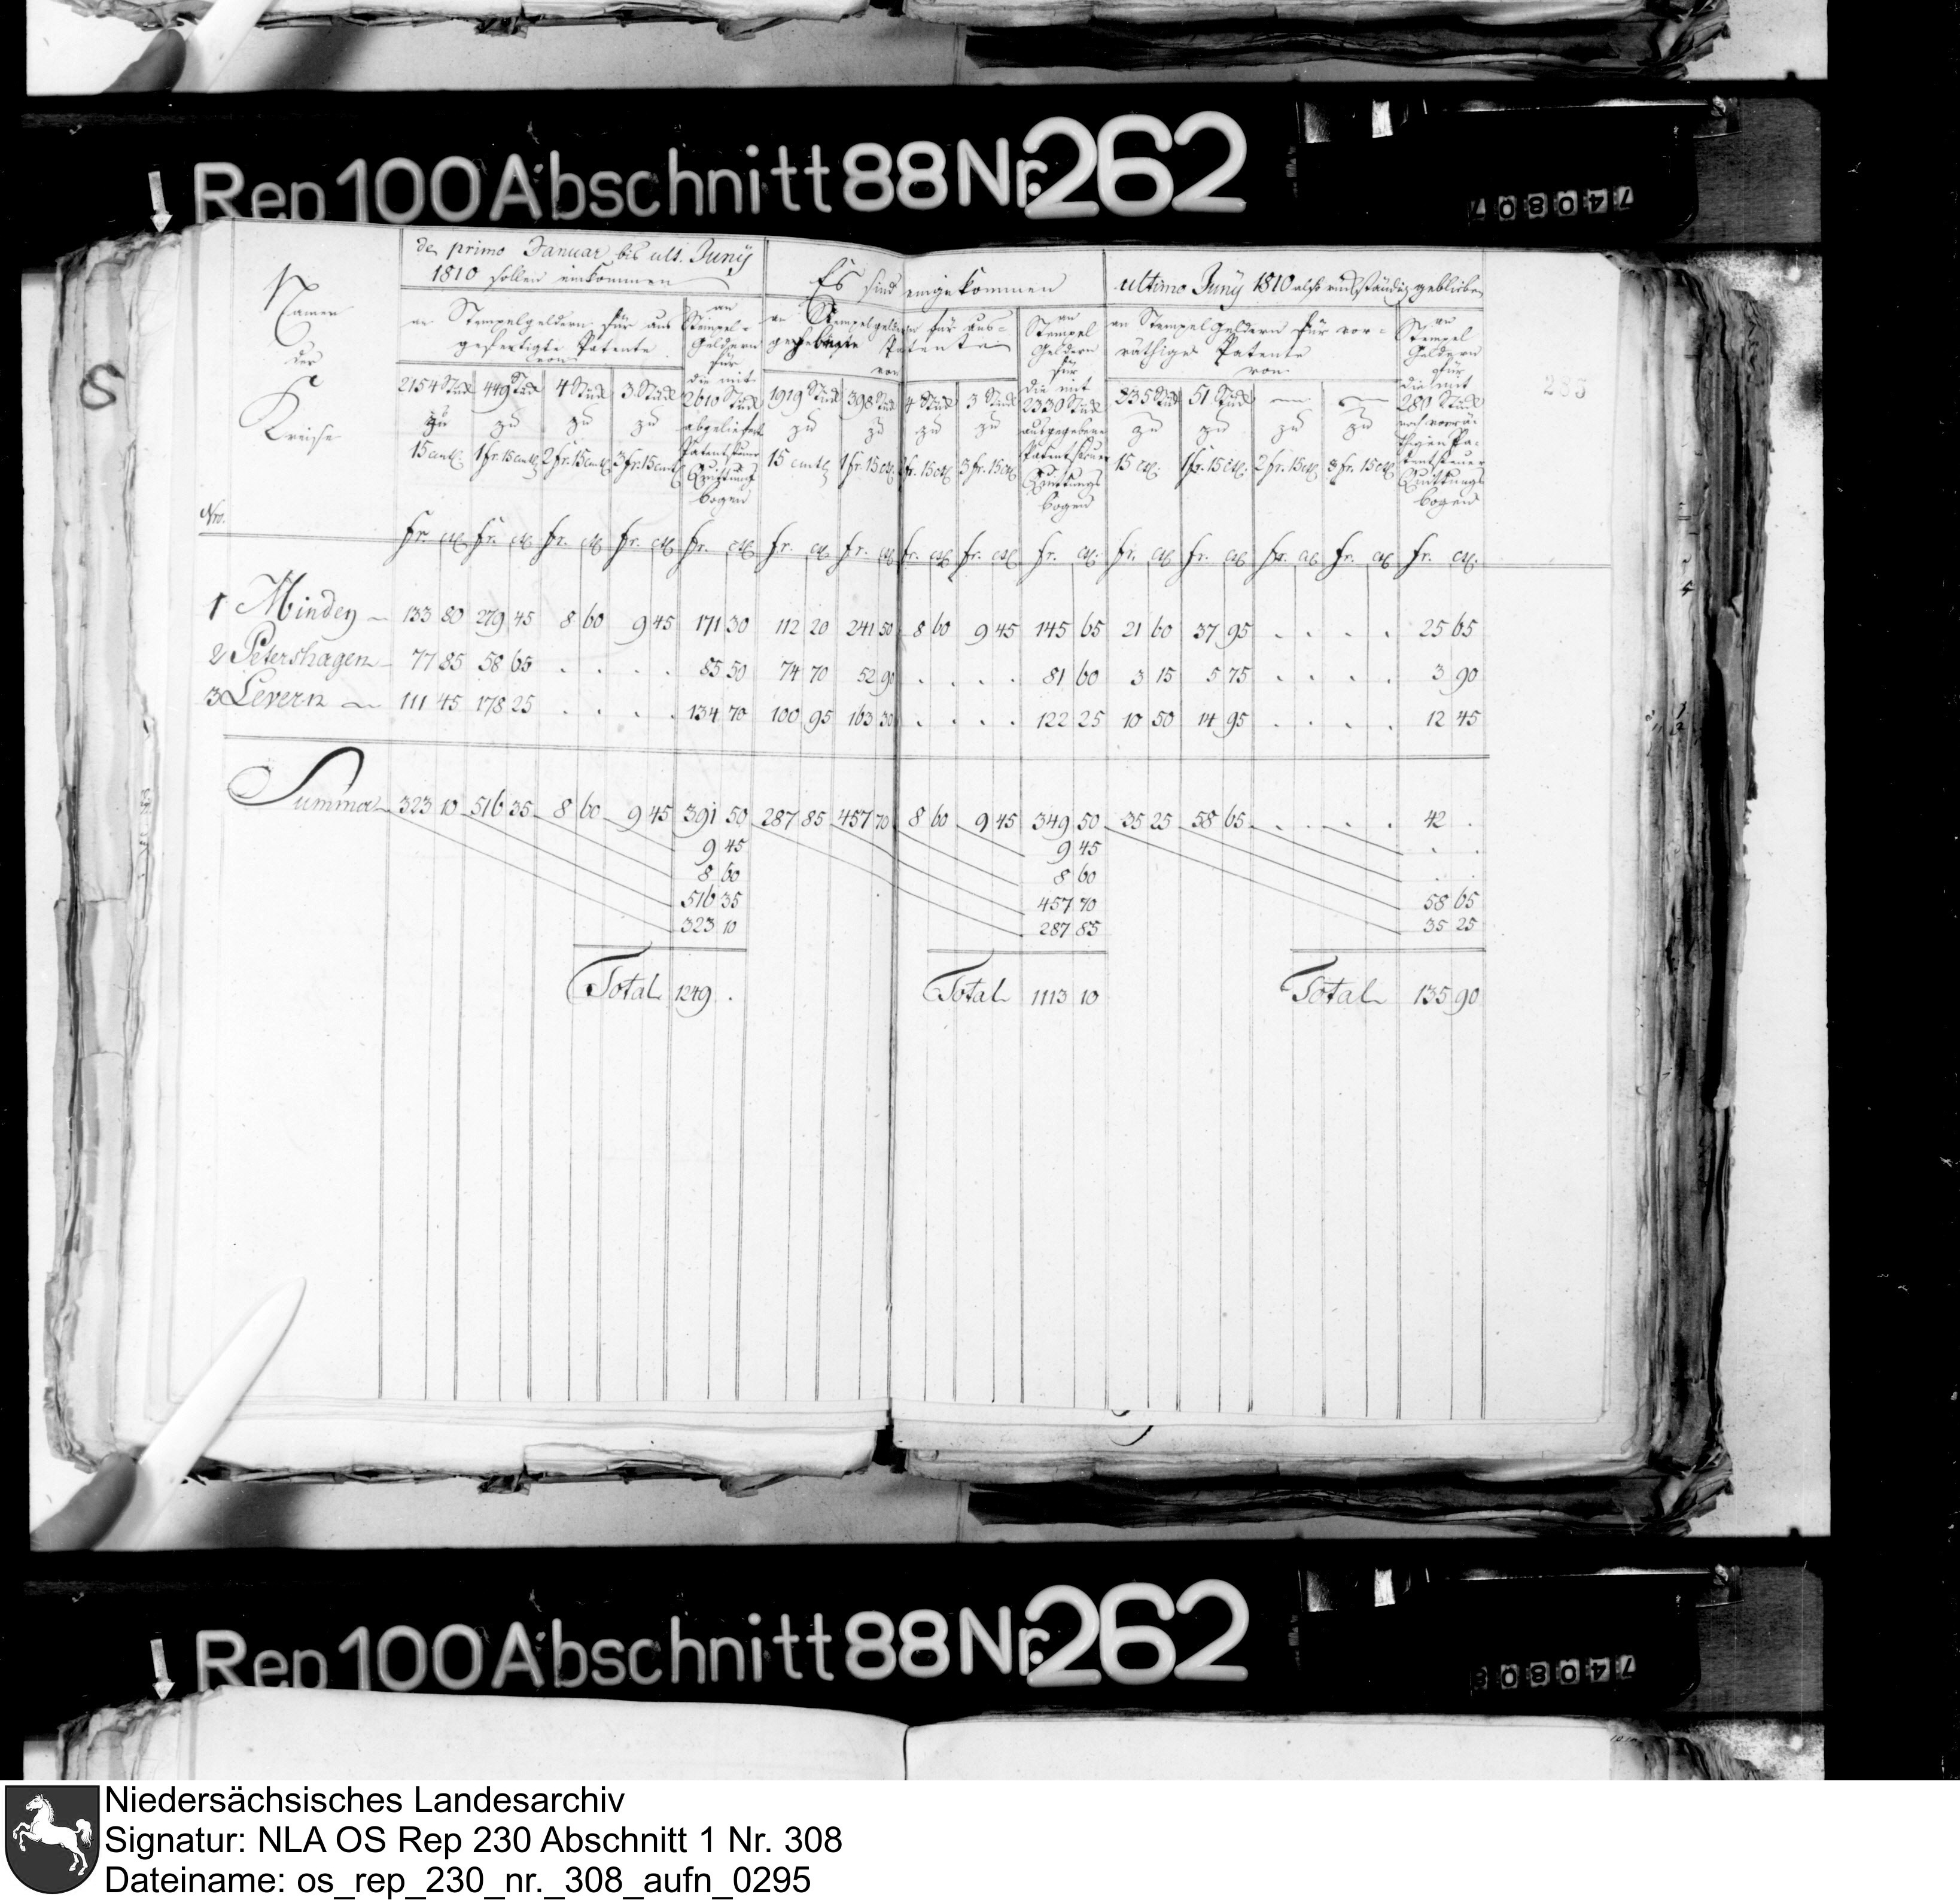 Rep 100 Abschnitt 88 Nr. 262
740807
S
283
Namen
der
Kreise
Nro.
de primo Januar bis ult. Juny
1810 sollen einkommen
an Stempelgeldern für aus
gefertigte Patente
von
2154 Stück 449 Stück 4 Stück 3 Stück
zu zu zu zu
15 cent. 1 fr. 15 cent. 2 fr. 15 cent. 3 fr. 15 cent.
an
Stempel-
Geldern
für
die mit
2610 Stück
abgeliefert
Patentsteuer
Quittungs
bogen
Es sind eingekommen
an Stempelgeldern für aus-
gegebene Patente
von
1919 Stück 398 Stück 4 Stück 3 Stück
zu zu zu zu
15 cent. 1 fr. 15 ct. 2 fr. 15 ct. 3 fr. 15 ct.
an
Stempel
Geldern
für
die mit
2330 Stück
ausgegebene
Patentsteuer
Quittungs
bogen
ultimo Juny 1810 also rückständig geblieben
an Stempelgeldern für vor-
räthige Patente
von
235 Stück 51 Stück — —
zu zu zu zu
15 ct. 1 fr. 15 ct. 2 fr. 15 ct. 3 fr. 15 ct.
an
Stempel
Geldern
für
die mit
280 Stück
noch vorrä-
thigen Pa-
tentsteuer
Quittungs
bogen
fr. ct. fr. ct. fr. ct. fr. ct. fr. ct. fr. ct. fr. ct. fr. ct. fr. ct. fr. ct. fr. ct. fr. ct. fr. ct. fr. ct. fr. ct.
1 Minden 133 80 279 45 8 60 9 45 171 30 112 20 241 50 8 60 9 45 145 65 21 60 37 95 . . . . 25 65
2 Petershagen 77 85 58 65 . . . . 85 50 74 70 52 90 . . . . 81 60 3 15 5 75 . . . . 3 90
3 Levern 111 45 178 25 . . . . 134 70 100 95 163 30 . . . . 122 25 10 50 14 95 . . . . 12 45
Summa 323 10 516 35 8 60 9 45 391 50 287 85 457 70 8 60 9 45 349 50 35 25 58 65 . . . . 42 .
9 45 9 45 . .
8 60 8 60 . .
516 35 457 70 58 65
323 10 287 85 35 25
Total 1249 . Total 1113 10 Total 135 90
Rep 100 Abschnitt 88 Nr. 262
740808
Niedersächsisches Landesarchiv
Signatur: NLA OS Rep 230 Abschnitt 1 Nr. 308
Dateiname: os_rep_230_nr._308_aufn_0295